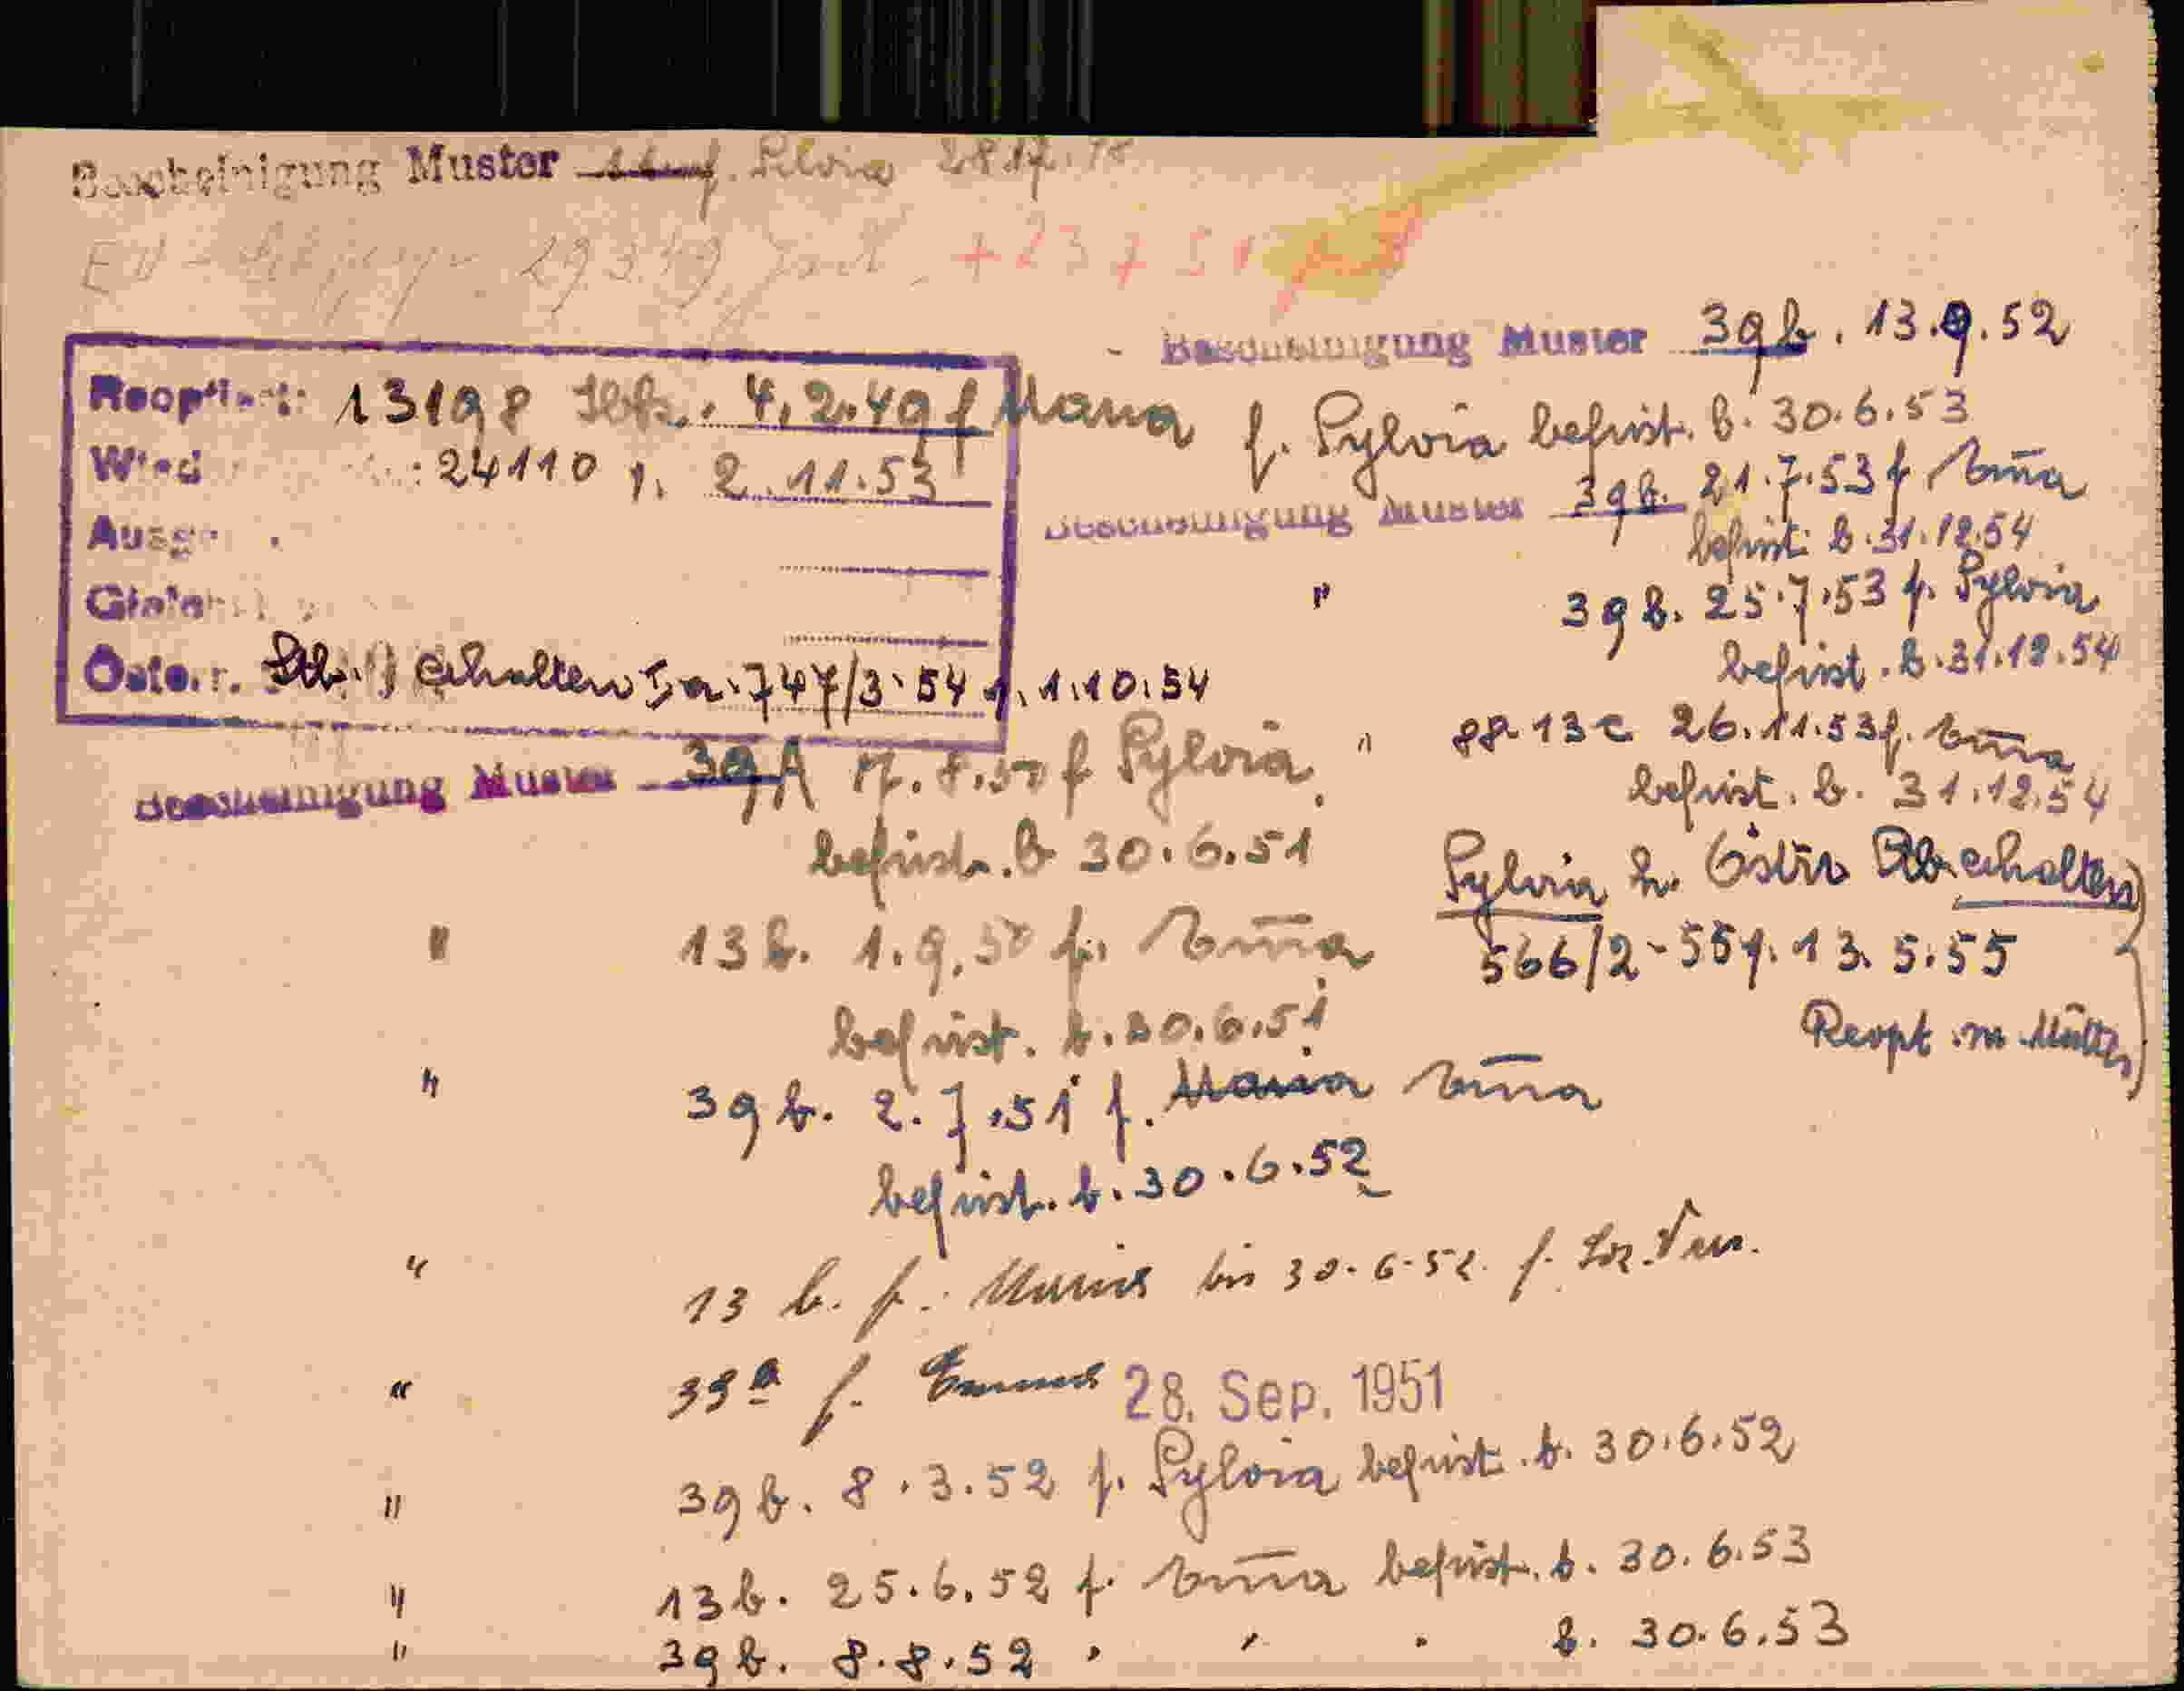 Bescheinigung Muster f. Silvia
29.3.49 + 23 7 51
Reoptiert: 13198 4.2.49 f Maria
Wied : 24110 2.11.53
Ausg
Österr. Stb. erhalten Ia-747/3-54 1.10.54
Bescheinigung Muster 39A 17.8.50 f Sylvia
befrist. b 30.6.51
" 13b. 1.9.50 f. Emma
befrist. b. 30.6.51
" 39b. 2.7.51 f. Maria Emma
befrist. b. 30.6.52
" 13 b. f. bis 30.6.52 f.
" 39a f. Emma 28. Sep. 1951
" 39b. 8.3.52 f. Sylvia befrist. b. 30.6.52
" 13b. 25.6.52 f. Emma befrist. b. 30.6.53
" 39b. 8.8.52 " " " b. 30.6.53
- Bescheinigung Muster 39b. 13.9.52
f. Sylvia befrist. b. 30.6.53
Bescheinigung Muster 39b. 21.7.53 f Emma
befrist. b. 31.12.54
" 39b. 25.7.53 f. Sylvia
befrist. b. 31.12.54
" 88-13c 26.11.53 f. Emma
befrist. b. 31.12.54
Sylvia h. Östr Stb. erhalten
566/2-55 13.5.55
Reopt. m Mutter